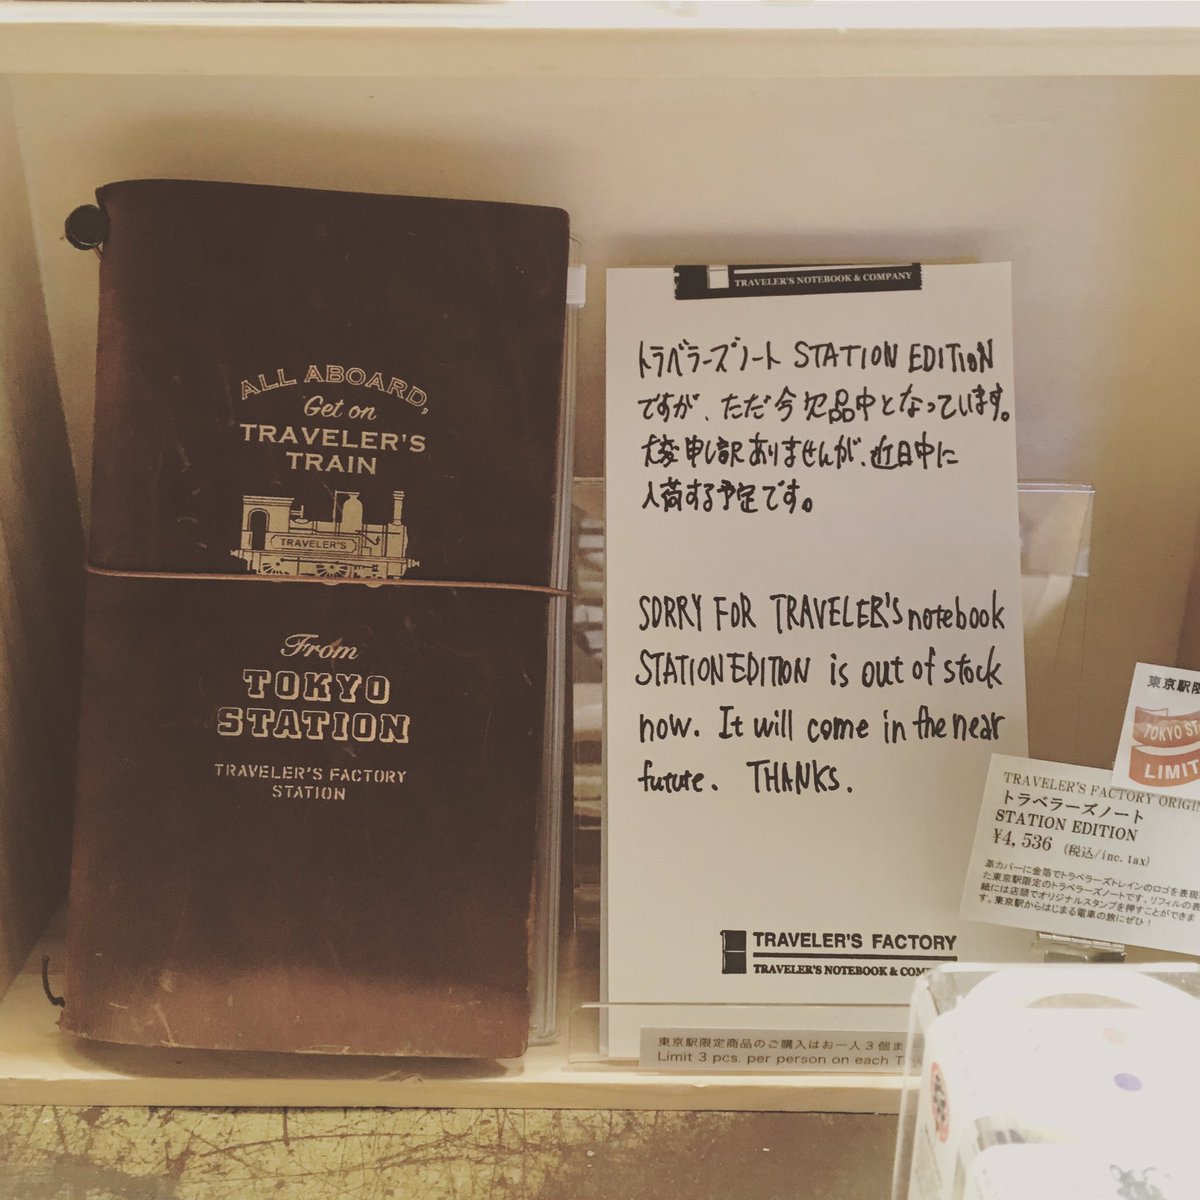 ALL ABOARD,
Get on
TRAVELER'S
TRAIN
TRAVELER'S
From
TOKYO
STATION
TRAVELER'S FACTORY
STATION
TRAVELER'S NOTEBOOK & COMPANY
トラベラーズノート STATION EDITION
ですが、ただ今欠品中となっています。
大変申し訳ありませんが、近日中に
入荷する予定です。
SORRY FOR TRAVELER'S notebook
STATION EDITION is out of stock
now. It will come in the near
future. THANKS.
TRAVELER'S FACTORY
TRAVELER'S NOTEBOOK &
東京駅限定商品のご購入はお一人3個ま
Limit 3 pcs. per person on each T
東京駅限
TOKYO ST
LIMIT
TRAVELER'S FACTORY ORIGIN
トラベラーズノート
STATION EDITION
¥4,536 (税込/inc. tax)
革カバーに金箔でトラベラーズトレインのロゴを表現
た東京駅限定のトラベラーズノートです。リフィルの表
紙には店頭でオリジナルスタンプを押すことができま
す。東京駅からはじまる電車の旅にぜひ！